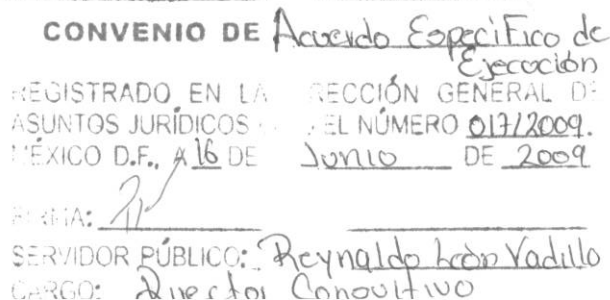 CONVENIO DE Acuerdo Específico de
Ejecución
REGISTRADO EN LA DIRECCIÓN GENERAL DE
ASUNTOS JURÍDICOS EL NÚMERO 017/2009.
MÉXICO D.F., A 16 DE Junio DE 2009
FIRMA:
SERVIDOR PÚBLICO: Reynaldo León Vadillo
CARGO: Director Consultivo